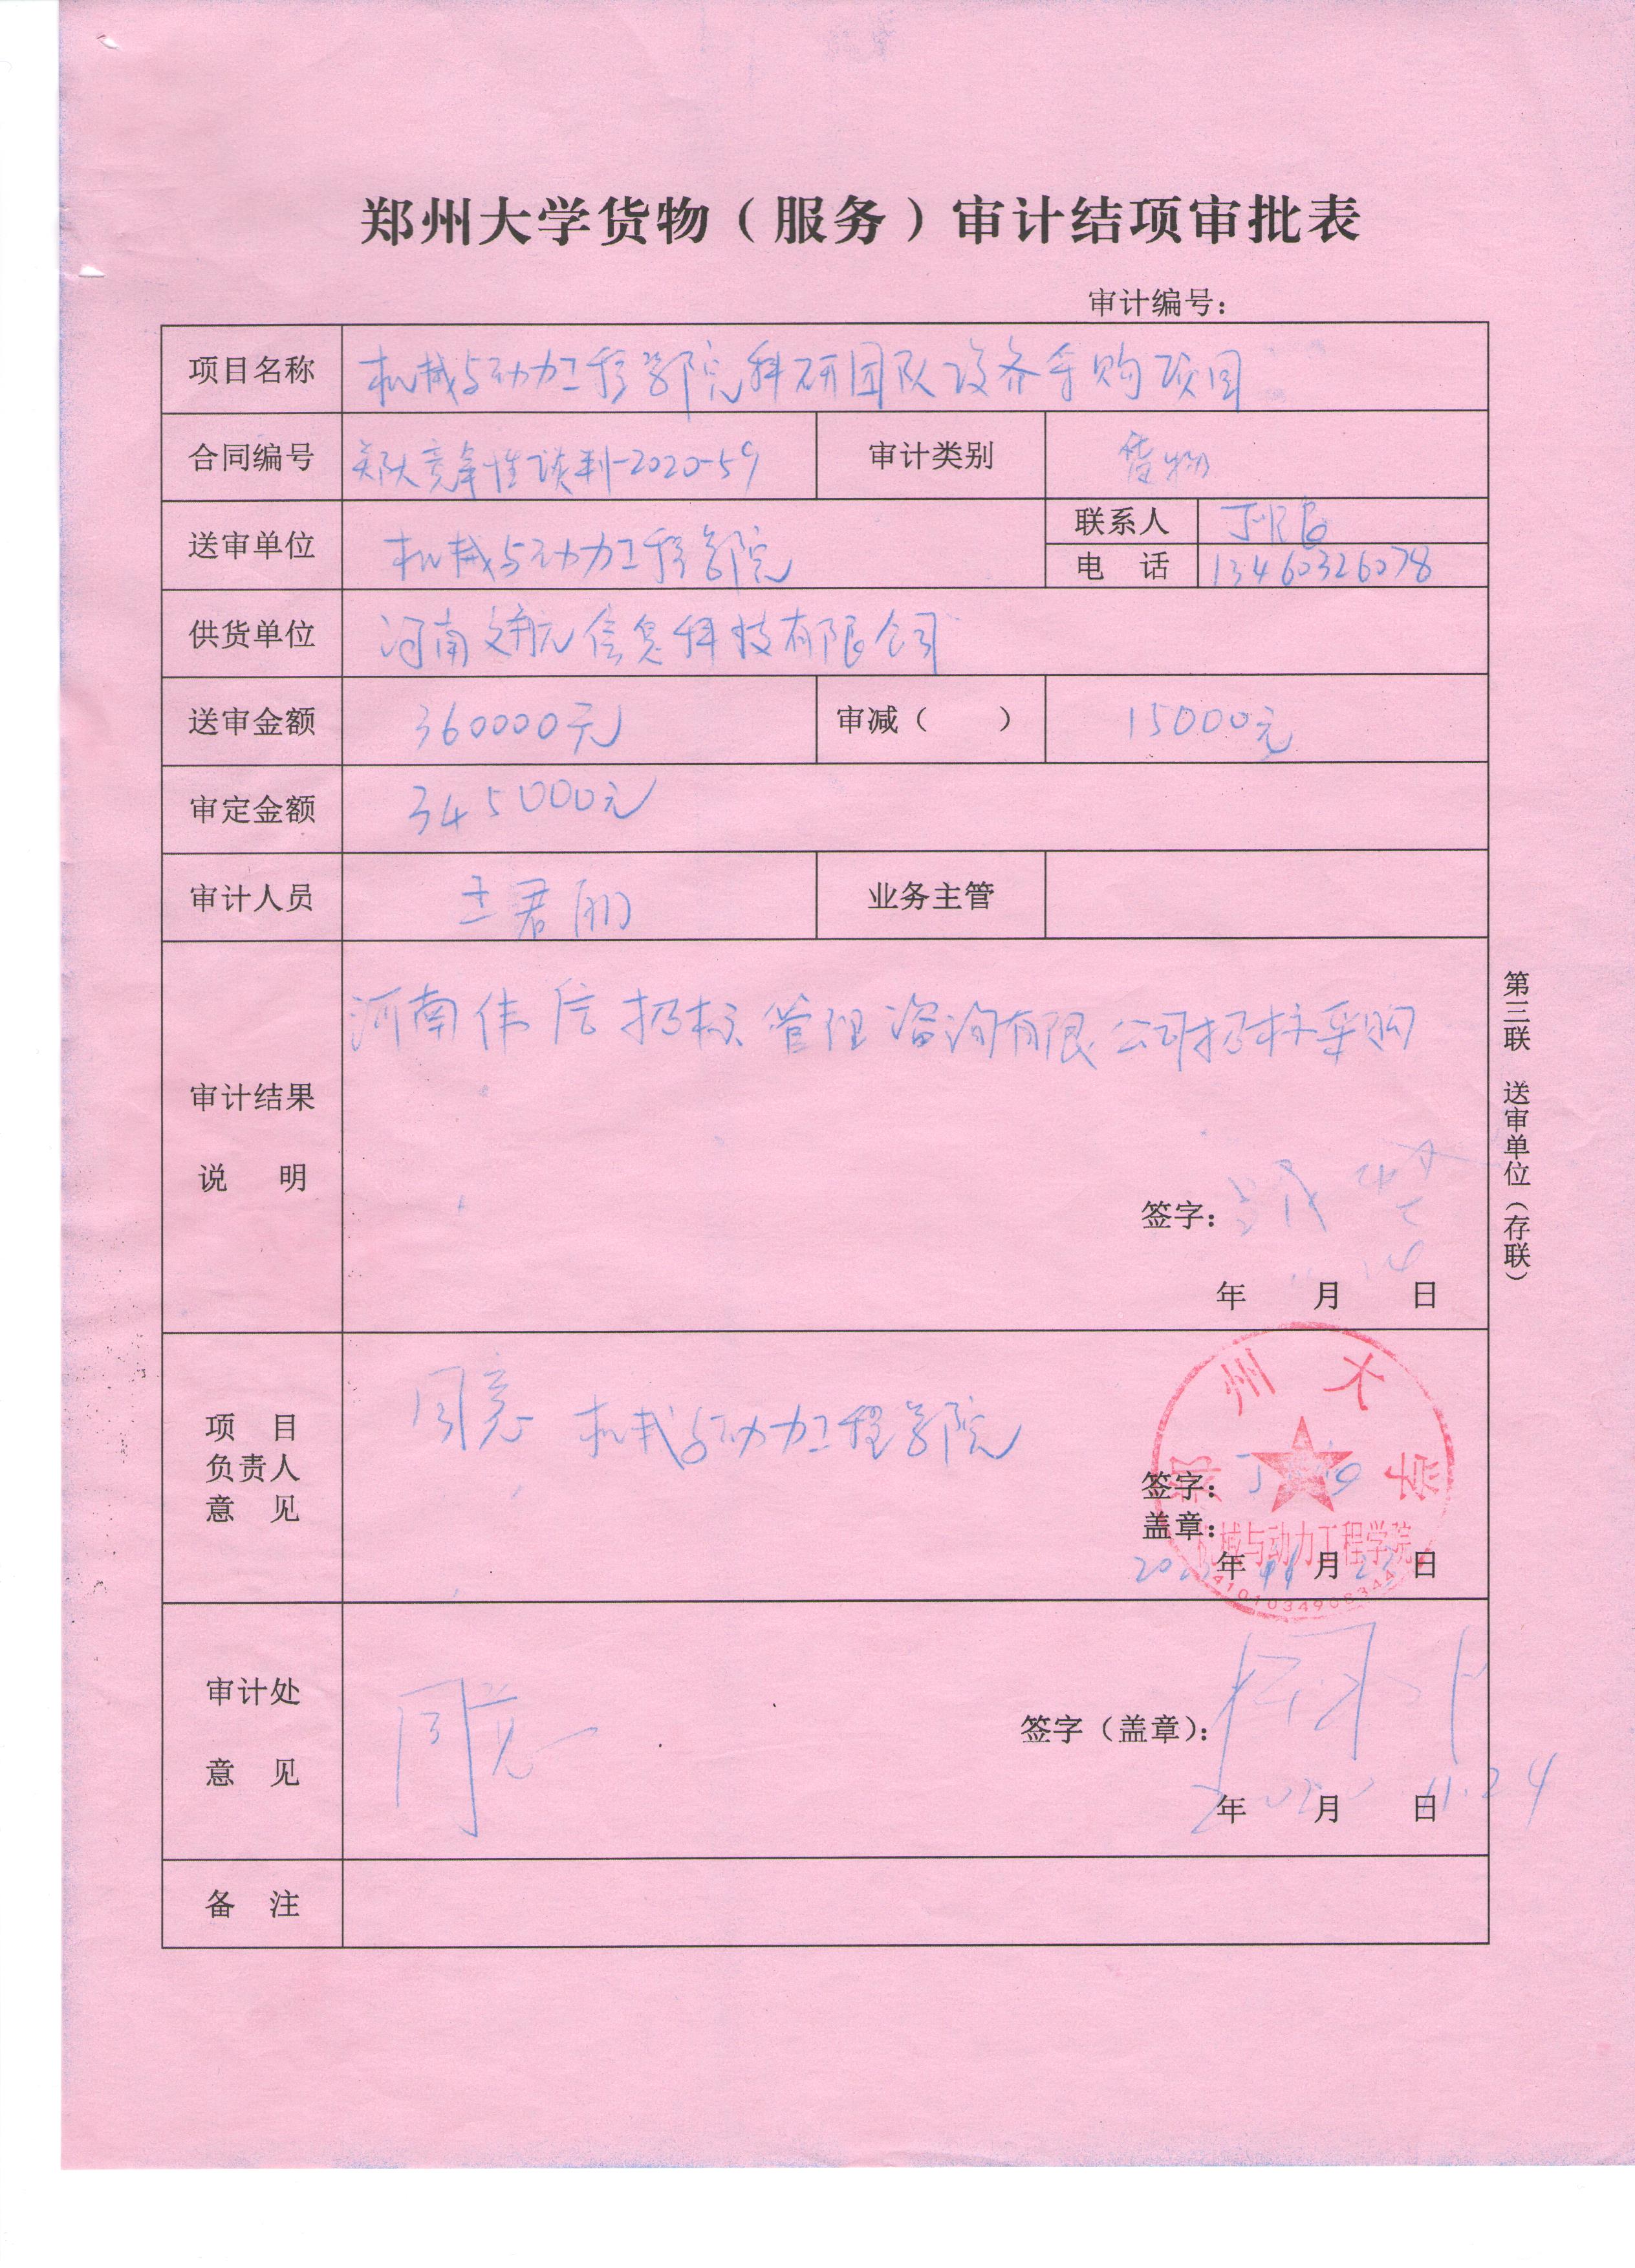 郑州大学货物（服务）审计结项审批表
审计编号：
项目名称 机械与动力工程学院科研团队设备采购项目
合同编号 郑大竞争性谈判-2020-59 审计类别 货物
送审单位 机械与动力工程学院 联系人
电 话 13460326078
供货单位 河南文航信息科技有限公司
送审金额 360000元 审减（ ） 15000元
审定金额 345000元
审计人员 王君丽 业务主管
审计结果
说 明
河南伟信招标管理咨询有限公司招标采购
签字：
年 月 日
项 目
负责人
意 见
同意 机械与动力工程学院
签字：
盖章：
年 11 月 日
郑州大学
机械与动力工程学院
审计处
意 见
同意
签字（盖章）：
年 月 日
2020 11.24
备 注
第三联 送审单位（存联）